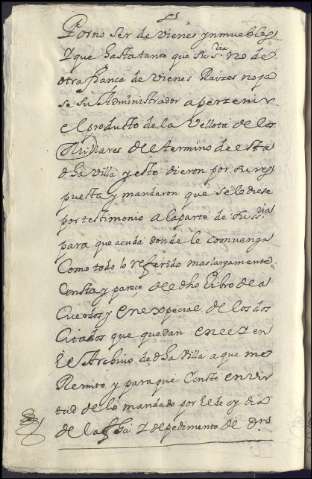 Por no ser de vienes ynmuebles
y que hasta tanto que su sria no de
otra franca de vienes Raizes no ga
se su Administrador a perzevir
el producto de la Vellota de los
del termino de esta
dha Villa y esto dieron por su res
puesta y mandaron que se le diese
por testimonio a la parte de su sria
para que acuda donde le convenga
Como todo lo referido mas largamente
Consta y parece del dho Libro de a
Cuerdos y en expecial de los dos
Citados que quedan en el y en
El Archivo de dha Villa a que me
Remito y para que Conste en vir
tud de lo mandado por el de oy dia
de la fha y de pedimento de